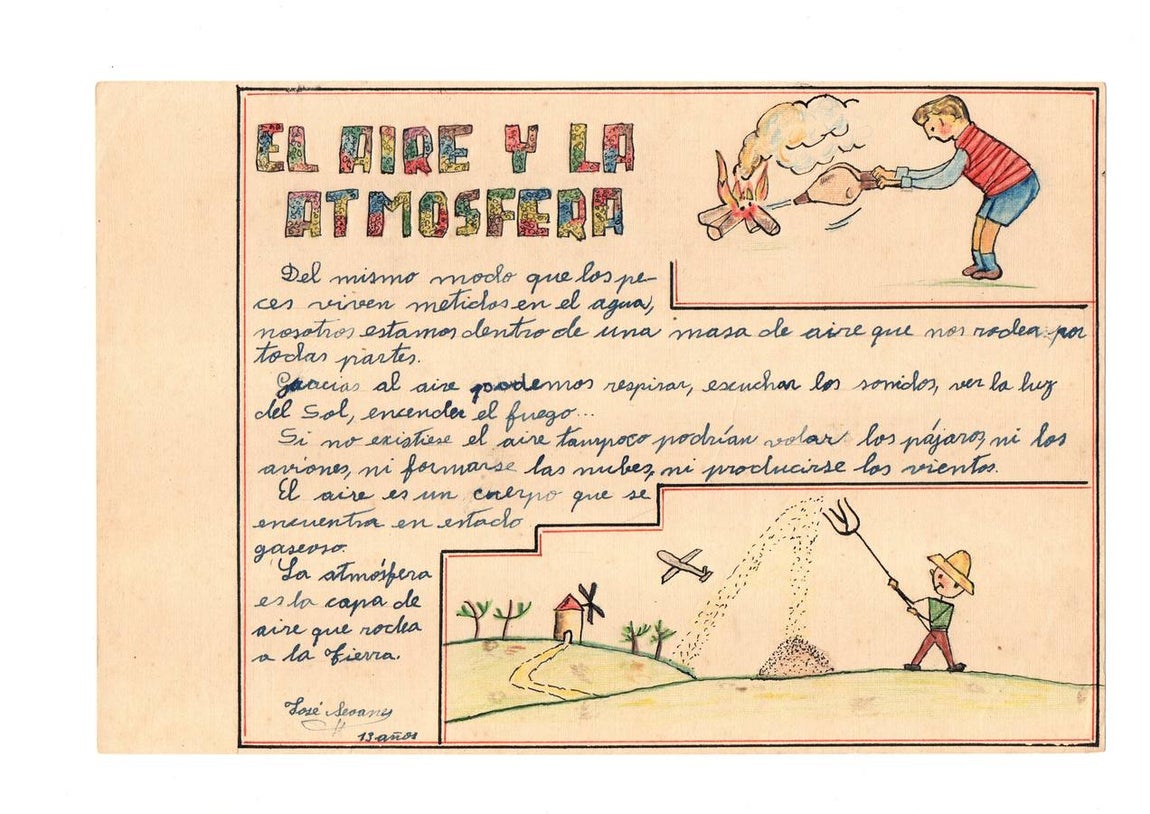 EL AIRE Y LA
ATMOSFERA
Del mismo modo que los pe-
ces viven metidos en el agua,
nosotros estamos dentro de una masa de aire que nos rodea por
todas partes.
Gracias al aire podemos respirar, escuchar los sonidos, ver la luz
del Sol, encender el fuego...
Si no existiese el aire tampoco podrían volar los pájaros, ni los
aviones, ni formarse las nubes, ni producirse los vientos.
El aire es un cuerpo que se
encuentra en estado
gaseoso.
La atmósfera
es la capa de
aire que rodea
a la Tierra.
José Seoanes
13 años